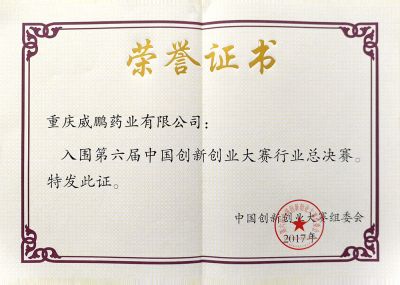 荣誉证书
重庆威鹏药业有限公司：
入围第六届中国创新创业大赛行业总决赛。
特发此证。
中国创新创业大赛组委会
2017年